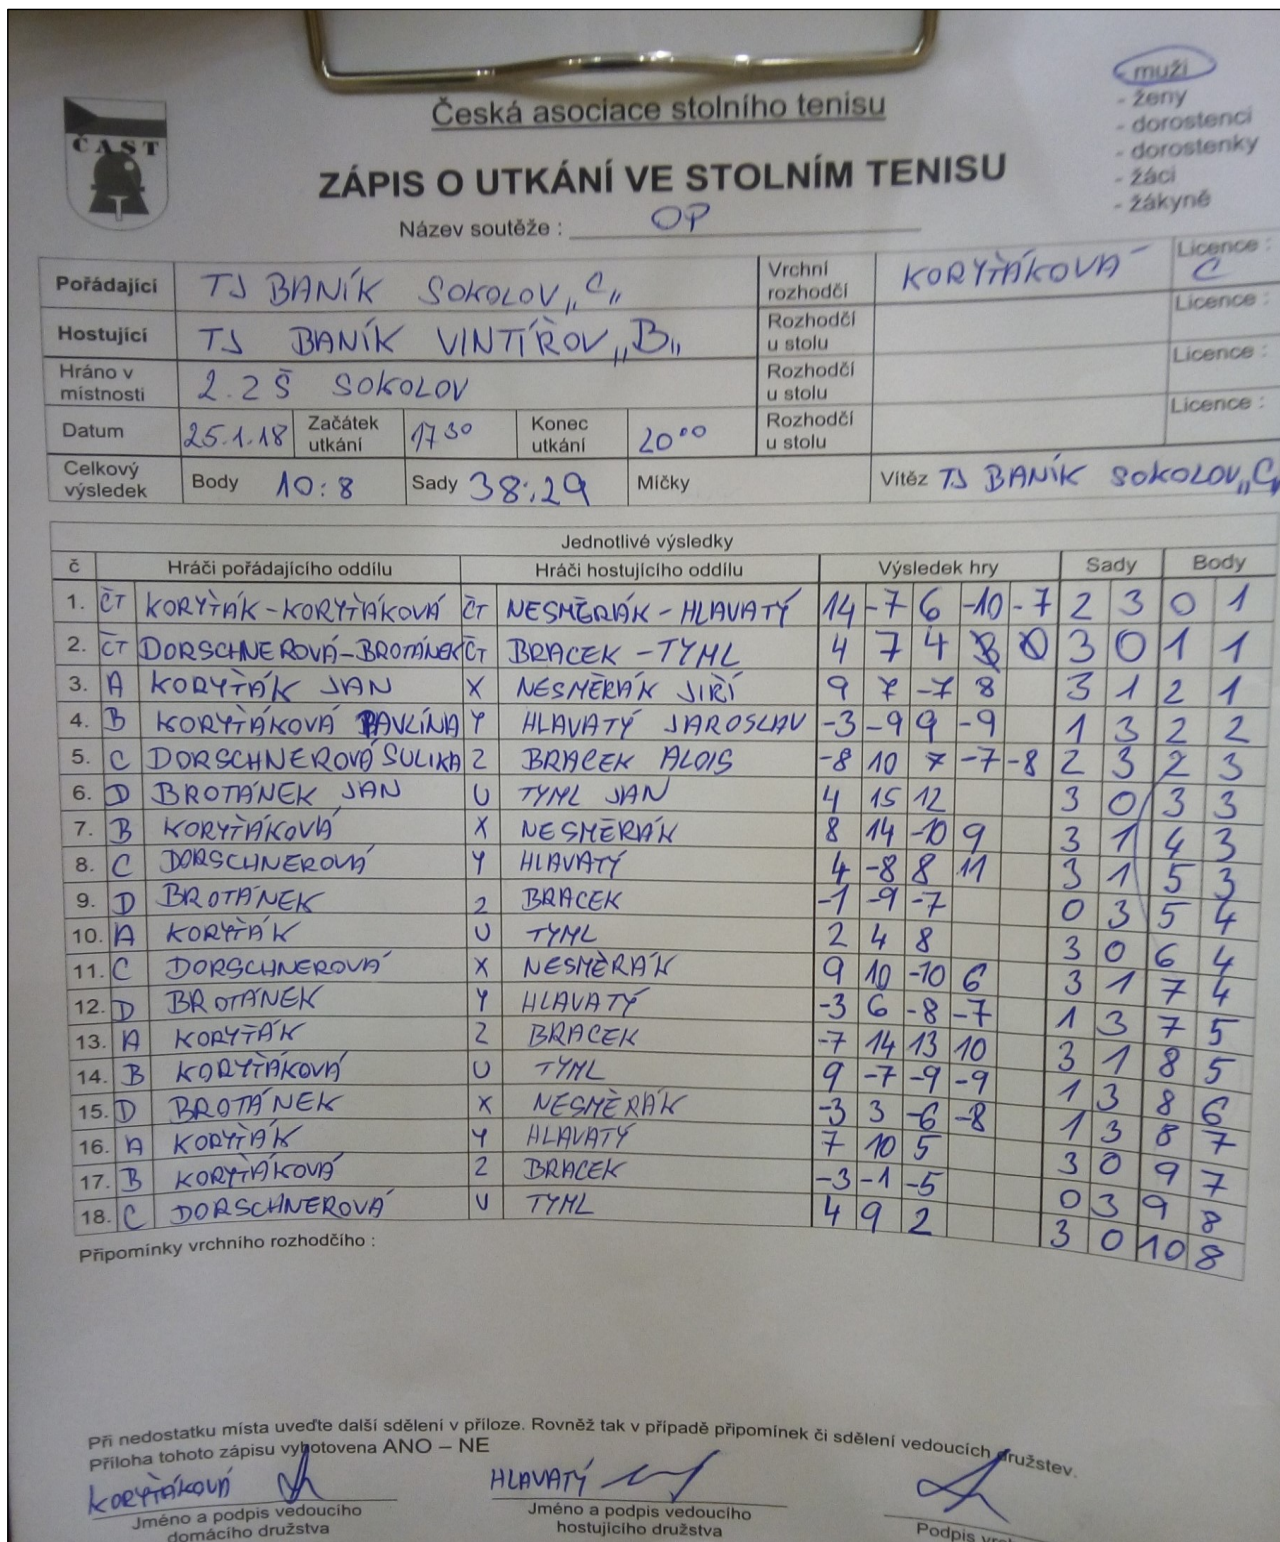 muži
- ženy
- dorostenci
- dorostenky
- žáci
- žákyně
ČAST
Česká asociace stolního tenisu
ZÁPIS O UTKÁNÍ VE STOLNÍM TENISU
Název soutěže : OP
Pořádající TJ BANÍK SOKOLOV „C„ Vrchní rozhodčí KORYŤÁKOVÁ Licence : C
Hostující TJ BANÍK VINTÍŘOV „B„ Rozhodčí u stolu Licence :
Hráno v místnosti 2. ZŠ SOKOLOV Rozhodčí u stolu Licence :
Datum 25.1.18 Začátek utkání 17 30 Konec utkání 20 00 Rozhodčí u stolu Licence :
Celkový výsledek Body 10:8 Sady 38:29 Míčky Vítěz TJ BANÍK SOKOLOV „C„
Jednotlivé výsledky
č Hráči pořádajícího oddílu Hráči hostujícího oddílu Výsledek hry Sady Body
1. ČT KORYŤÁK - KORYŤÁKOVÁ ČT NESMĚRÁK - HLAVATÝ 14 -7 6 -10 -7 2 3 0 1
2. ČT DORSCHNEROVÁ - BROTÁNEK ČT BRACEK - TYML 4 7 4 3 0 1 1
3. A KORYŤÁK JAN X NESMĚRÁK JIŘÍ 9 7 -7 8 3 1 2 1
4. B KORYŤÁKOVÁ PAVLÍNA Y HLAVATÝ JAROSLAV -3 -9 9 -9 1 3 2 2
5. C DORSCHNEROVÁ JULIKA Z BRACEK ALOIS -8 10 7 -7 -8 2 3 2 3
6. D BROTÁNEK JAN U TYML JAN 4 15 12 3 0 3 3
7. B KORYŤÁKOVÁ X NESMĚRÁK 8 14 -10 9 3 1 4 3
8. C DORSCHNEROVÁ Y HLAVATÝ 4 -8 8 11 3 1 5 3
9. D BROTÁNEK Z BRACEK -1 -9 -7 0 3 5 4
10. A KORYŤÁK U TYML 2 4 8 3 0 6 4
11. C DORSCHNEROVÁ X NESMĚRÁK 9 10 -10 6 3 1 7 4
12. D BROTÁNEK Y HLAVATÝ -3 6 -8 -7 1 3 7 5
13. A KORYŤÁK Z BRACEK -7 14 13 10 3 1 8 5
14. B KORYŤÁKOVÁ U TYML 9 -7 -9 -9 1 3 8 6
15. D BROTÁNEK X NESMĚRÁK -3 3 -6 -8 1 3 8 7
16. A KORYŤÁK Y HLAVATÝ 7 10 5 3 0 9 7
17. B KORYŤÁKOVÁ Z BRACEK -3 -1 -5 0 3 9 8
18. C DORSCHNEROVÁ U TYML 4 9 2 3 0 10 8
Připomínky vrchního rozhodčího :
Při nedostatku místa uveďte další sdělení v příloze. Rovněž tak v případě připomínek či sdělení vedoucích družstev.
Příloha tohoto zápisu vyhotovena ANO – NE
KORYŤÁKOVÁ HLAVATÝ
Jméno a podpis vedoucího domácího družstva
Jméno a podpis vedoucího hostujícího družstva
Podpis